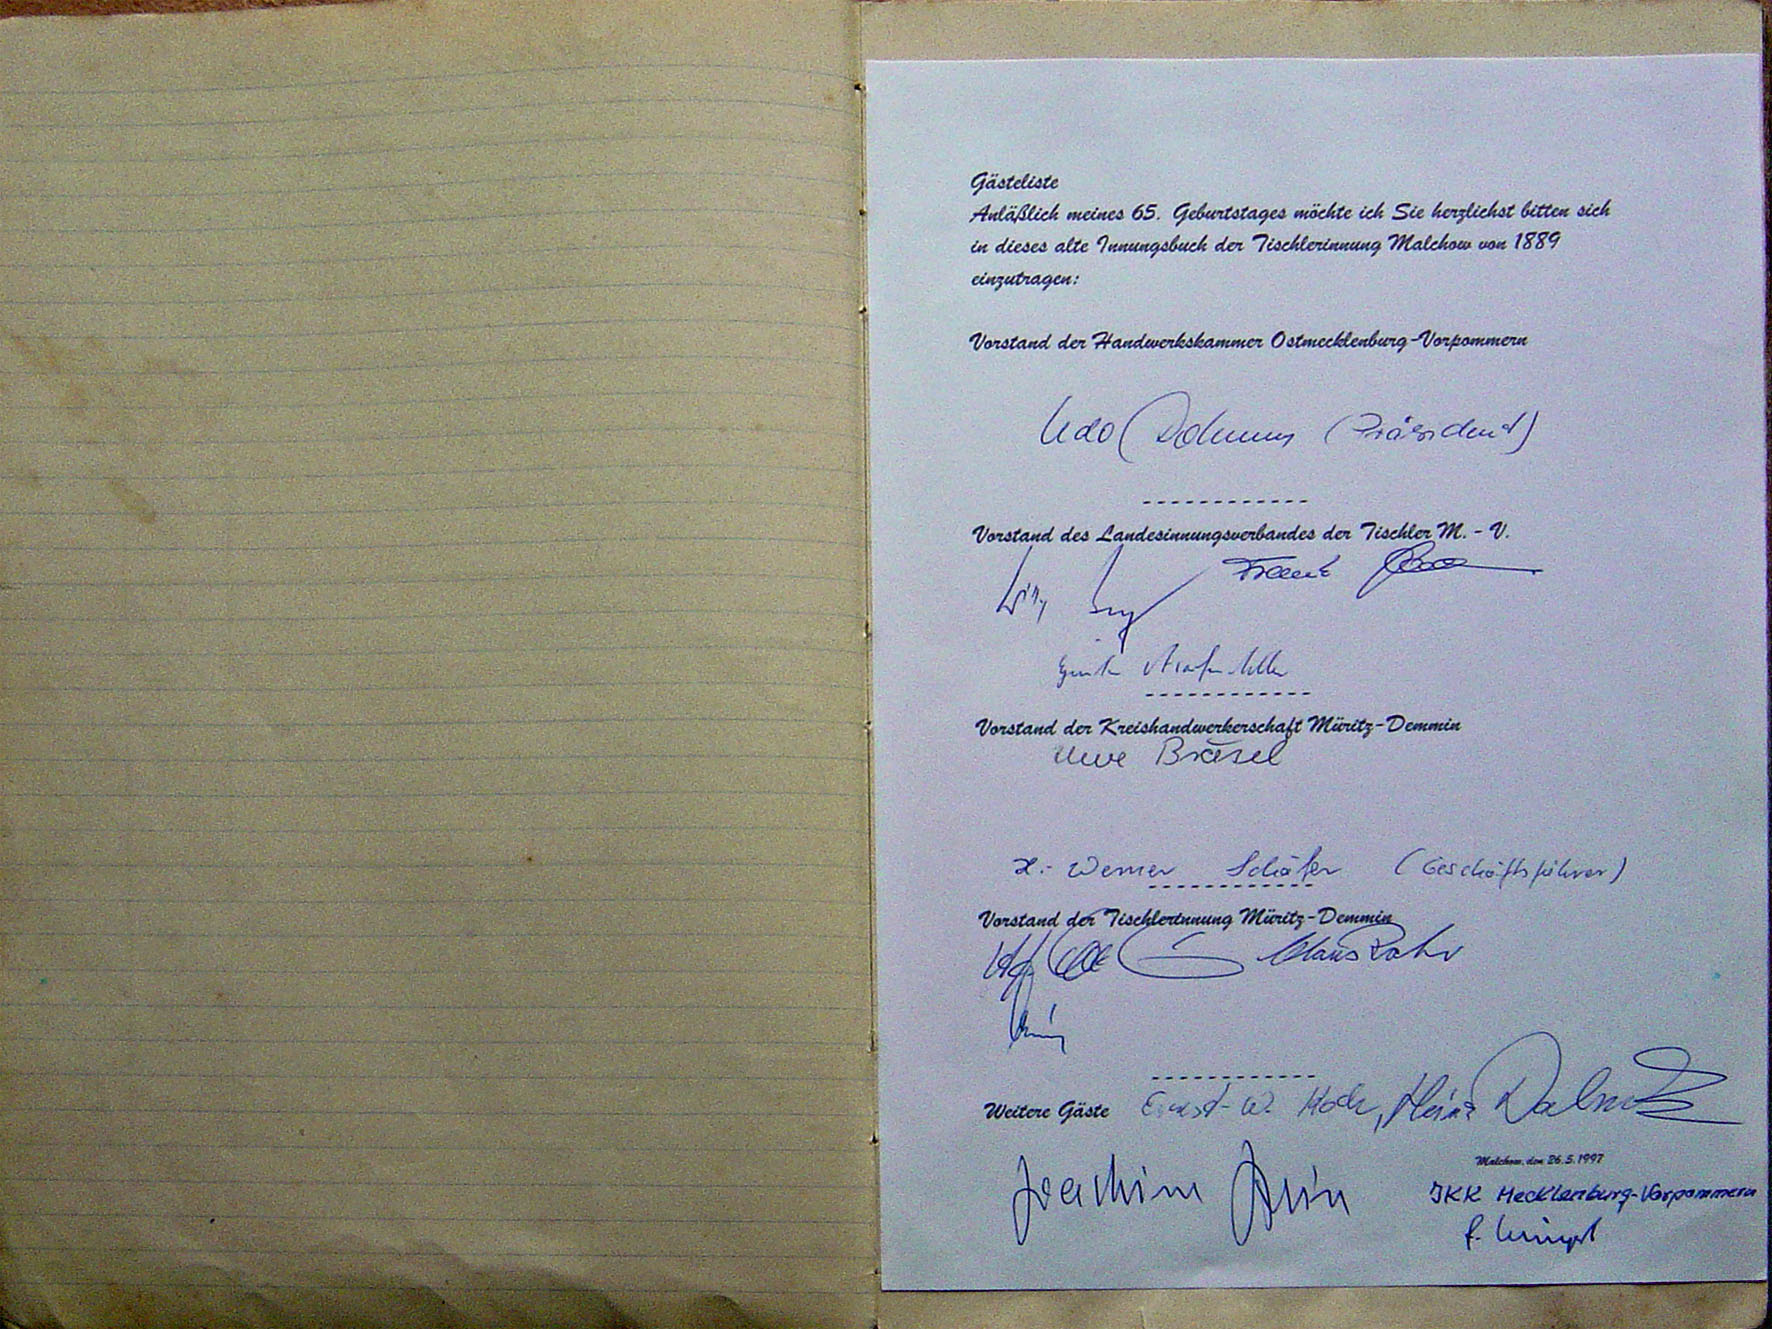 Gästeliste
Anläßlich meines 65. Geburtstages möchte ich Sie herzlichst bitten sich
in dieses alte Innungsbuch der Tischlerinnung Malchow von 1889
einzutragen:
Vorstand der Handwerkskammer Ostmecklenburg-Vorpommern
Udo (Präsident)
------------
Vorstand des Landesinnungsverbandes der Tischler M. - V.
------------
Vorstand der Kreishandwerkerschaft Müritz-Demmin
Uwe Bräsel
Werner Schäfer (Geschäftsführer)
------------
Vorstand der Tischlerinnung Müritz-Demmin
Klaus
------------
Weitere Gäste Ernst-W. Koch, Heinz
Malchow, den 26.5.1997
Joachim
IKK Mecklenburg-Vorpommern